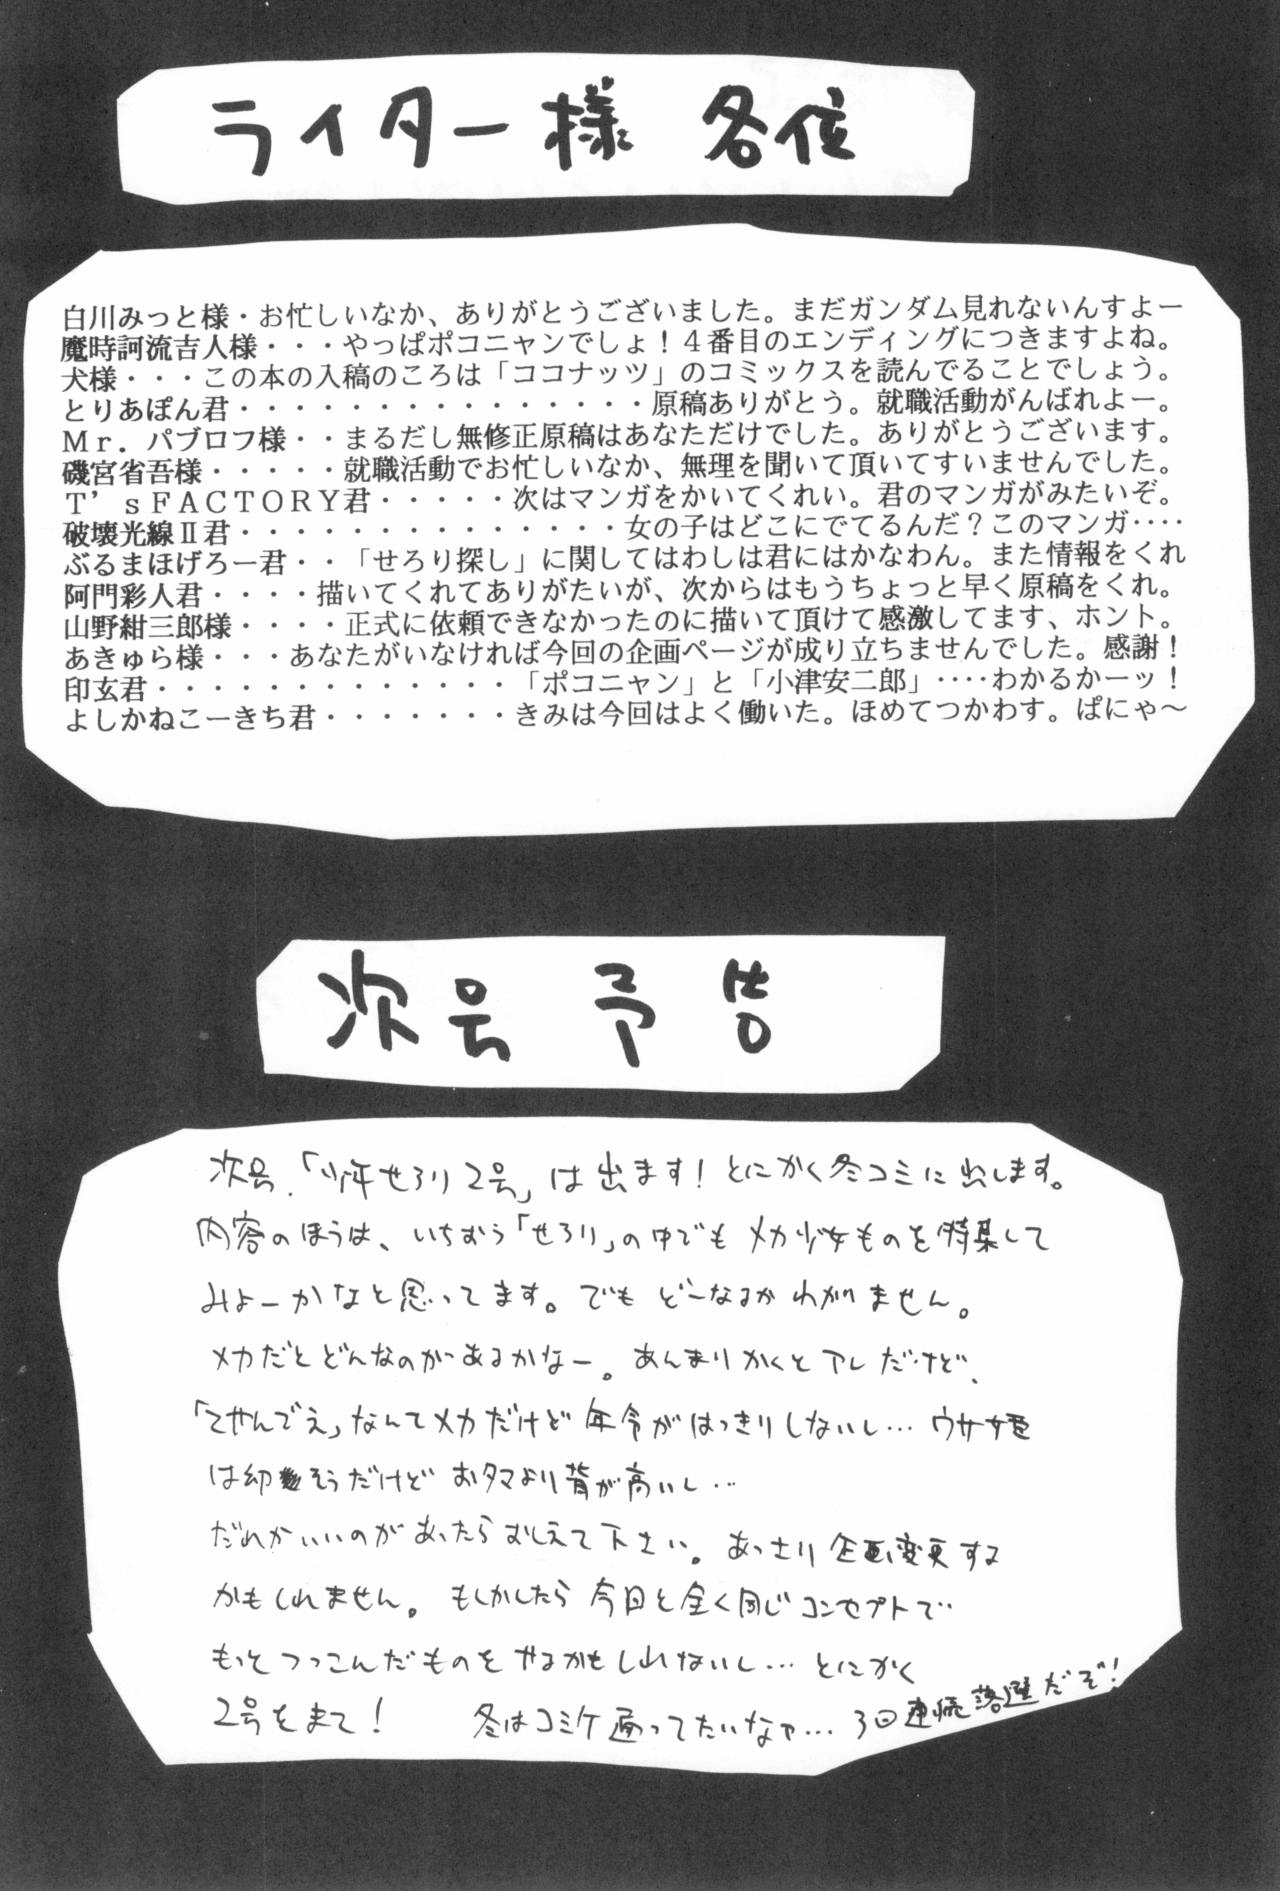 ライター様 各位
白川みっと様・お忙しいなか、ありがとうございました。まだガンダム見れないんすよー
魔時訶流吉人様・・・やっぱポコニャンでしょ！４番目のエンディングにつきますよね。
犬様・・・この本の入稿のころは「ココナッツ」のコミックスを読んでることでしょう。
とりあぽん君・・・・・・・・・・・・・・・原稿ありがとう。就職活動がんばれよー。
Ｍｒ．パブロフ様・・まるだし無修正原稿はあなただけでした。ありがとうございます。
磯宮省吾様・・・・・就職活動でお忙しいなか、無理を聞いて頂いてすいませんでした。
Ｔ’ｓＦＡＣＴＯＲＹ君・・・・・次はマンガをかいてくれい。君のマンガがみたいぞ。
破壊光線Ⅱ君・・・・・・・・・・・・・・女の子はどこにでてるんだ？このマンガ‥‥
ぶるまほげろー君・・「せろり探し」に関してはわしは君にはかなわん。また情報をくれ
阿門彩人君・・・・描いてくれてありがたいが、次からはもうちょっと早く原稿をくれ。
山野紺三郎様・・・・正式に依頼できなかったのに描いて頂けて感激してます、ホント。
あきゅら様・・・あなたがいなければ今回の企画ページが成り立ちませんでした。感謝！
印玄君・・・・・・・・・・・・・「ポコニャン」と「小津安二郎」‥‥わかるかーッ！
よしかねこーきち君・・・・・・・きみは今回はよく働いた。ほめてつかわす。ぱにゃ～
次号 予告
次号、「少年せろり2号」は出ます！とにかく冬コミに出します。
内容のほうは、いちおう「せろり」の中でもメカ少女ものを特集して
みよーかなと思ってます。でもどーなるかわかりません。
メカだとどんなのがあるかなー。あんまりかくとアレだけど、
「てせんでえ」なんてメカだけど年令がはっきりしないし…ウサ姫
は幼そうだけどおタマより背が高いし…
だれかいいのがあったらおしえて下さい。あっさり企画変更する
かもしれません。もしかしたら今回と全く同じコンセプトで
もっとつっこんだものをやるかもしれないし…とにかく
2号をまて！ 冬はコミケ通ってたいなァ…3回連続落選だぞ！